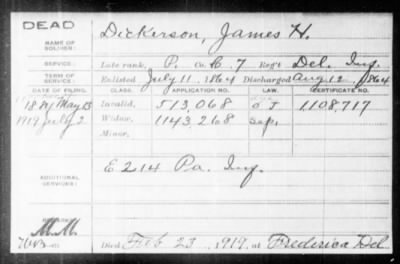 DEAD
NAME OF SOLDIER: Dickerson, James H.
SERVICE: Late rank, P. Co. C. 7 Reg't Del. Inf.
TERM OF SERVICE: Enlisted July 11, 1864 Discharged Aug 12, 1864
DATE OF FILING. CLASS. APPLICATION NO. LAW. CERTIFICATE NO.
May 13 Invalid, 513,068 O J 1108,717
1919 July 2 Widow, 1143,268 Sep.
Minor,
ADDITIONAL SERVICES: E 214 Pa. Inf.
REMARKS:
M.M.
Died Feb 23, 1919, at Frederica Del.